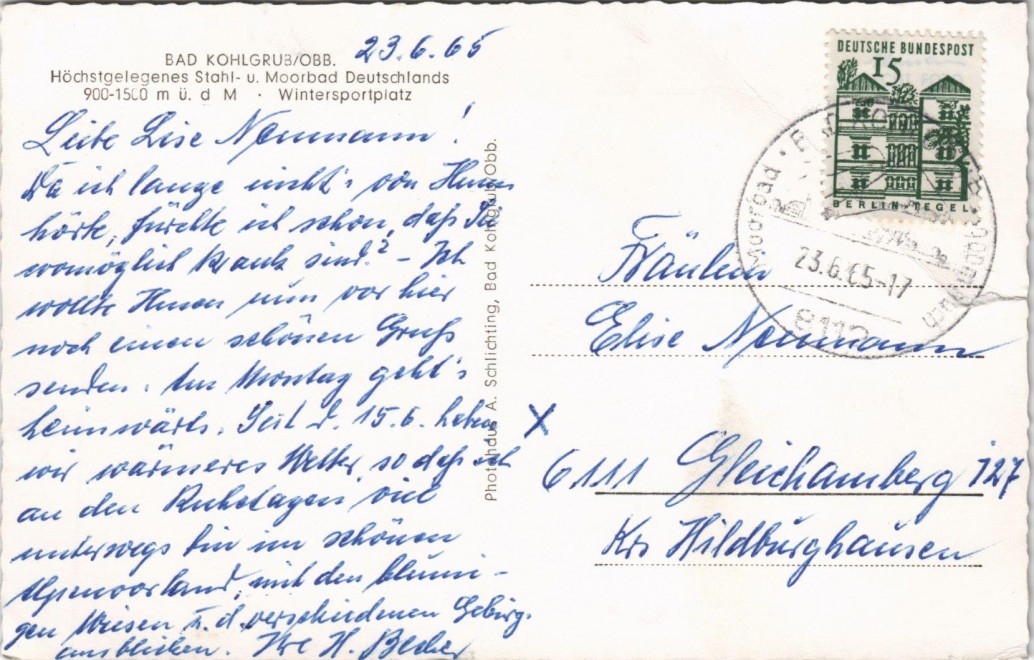 BAD KOHLGRUB/OBB.
Höchstgelegenes Stahl- u. Moorbad Deutschlands
900-1500 m ü. d M · Wintersportplatz
23.6.65
Liebe Lise Neumann!
Da ich lange nicht's von Ihnen
hörte, fürchte ich schon, daß Sie
womöglich krank sind? - Ich
wollte Ihnen nun von hier
noch einen schönen Gruß
senden. Am Montag geht's
heimwärts. Seit d. 15.6. haben
wir wärmeres Wetter, so daß ich
an den Ruhetagen viel
unterwegs bin im schönen
Alpenvorland, mit den blumi-
gen Wiesen u. d. verschiedenen Gebirgs-
ausblicken. Ihre H. Becher
Photohaus A. Schlichting, Bad Kohlgrub/Obb.
DEUTSCHE BUNDESPOST
15
BERLIN-TEGEL
Moorbad · BAD KOHLGRUB
23.6.65-17
8112
Fräulein
Elise Neumann
x
6111 Gleichamberg 127
Krs Hildburghausen